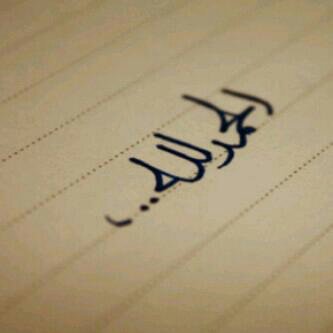 الحمدلله..